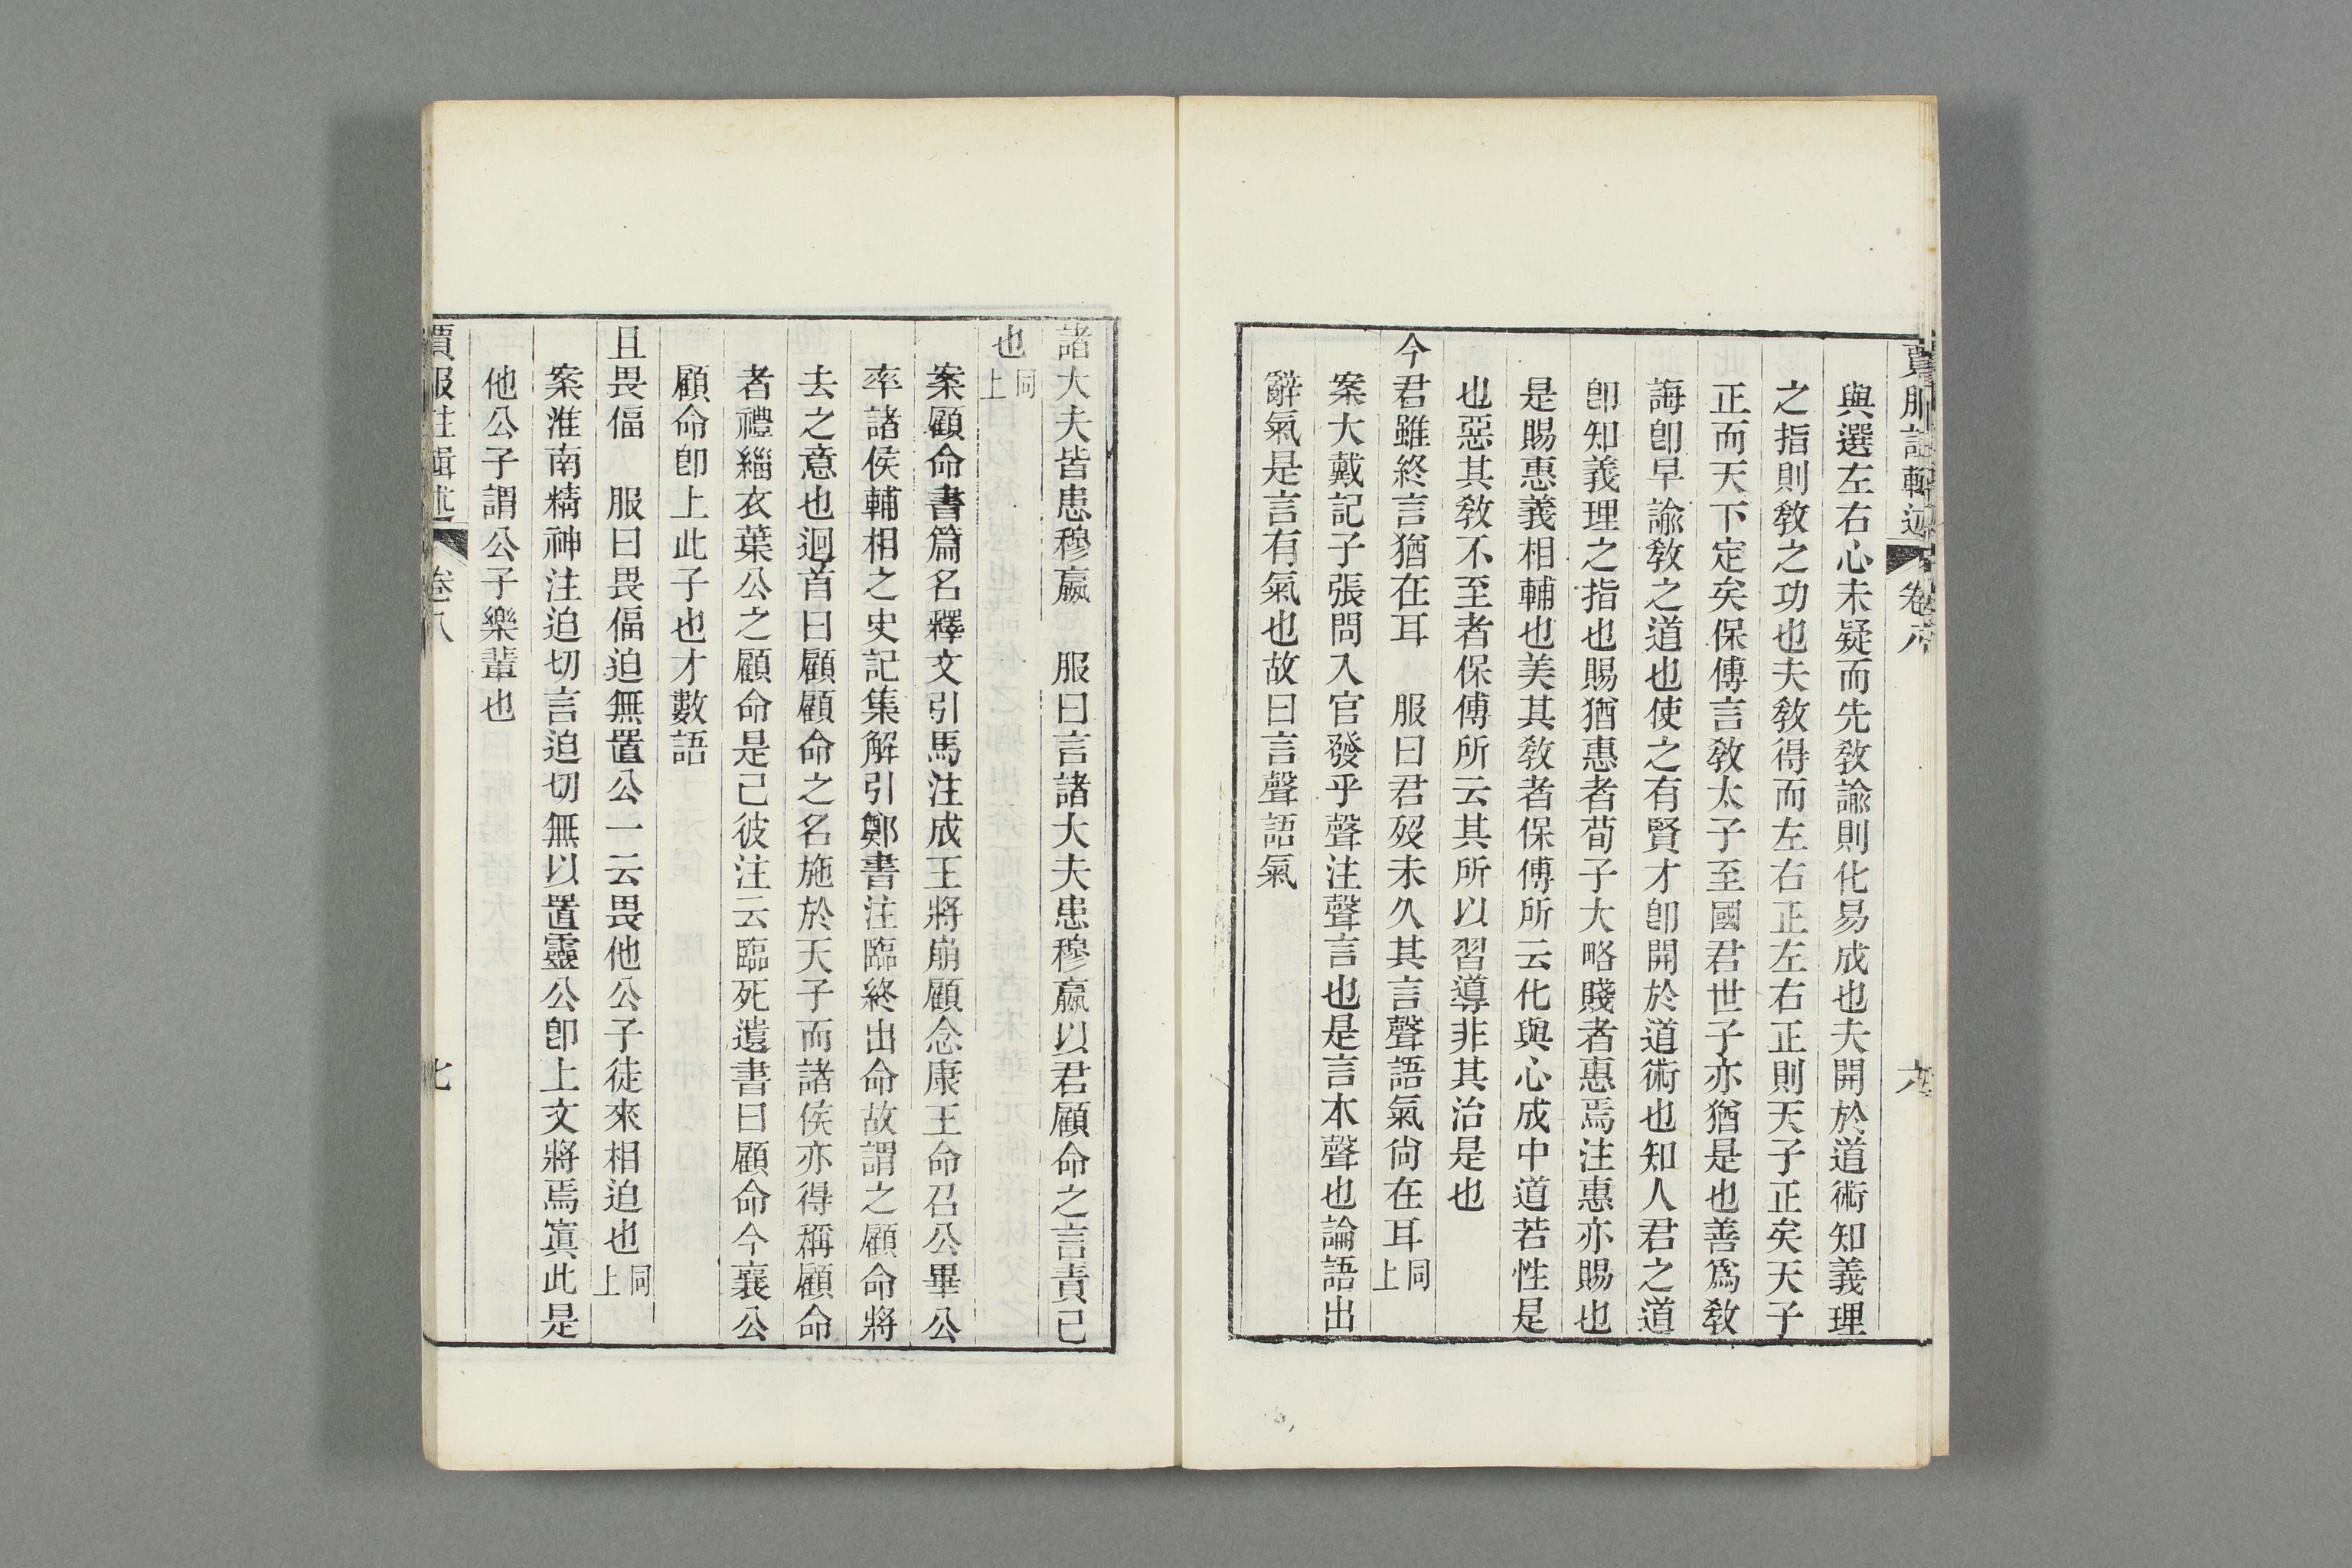 賈服注輯述 卷八 六
與選左右心未疑而先敎諭則化易成也夫開於道術知義理
之指則敎之功也夫敎得而左右正左右正則天子正矣天子
正而天下定矣保傅言敎太子至國君世子亦猶是也善爲敎
誨卽早諭敎之道也使之有賢才卽開於道術也知人君之道
卽知義理之指也賜猶惠者荀子大略賤者惠焉注惠亦賜也
是賜惠義相輔也美其敎者保傅所云化與心成中道若性是
也惡其敎不至者保傅所云其所以習導非其治是也
今君雖終言猶在耳　服曰君歿未久其言聲語氣尙在耳同上
案大戴記子張問入官發乎聲注聲言也是言本聲也論語出
辭氣是言有氣也故曰言聲語氣
諸大夫皆患穆嬴　服曰言諸大夫患穆嬴以君顧命之言責己
也同上
案顧命書篇名釋文引馬注成王將崩顧念康王命召公畢公
率諸侯輔相之史記集解引鄭書注臨終出命故謂之顧命將
去之意也迴首曰顧顧命之名施於天子而諸侯亦得稱顧命
者禮緇衣葉公之顧命是已彼注云臨死遺書曰顧命今襄公
顧命卽上此子也才數語
且畏偪　服曰畏偪迫無置公一云畏他公子徒來相迫也同上
案淮南精神注迫切言迫切無以置靈公卽上文將焉寘此是
他公子謂公子樂輩也
賈服注輯述 卷八 七